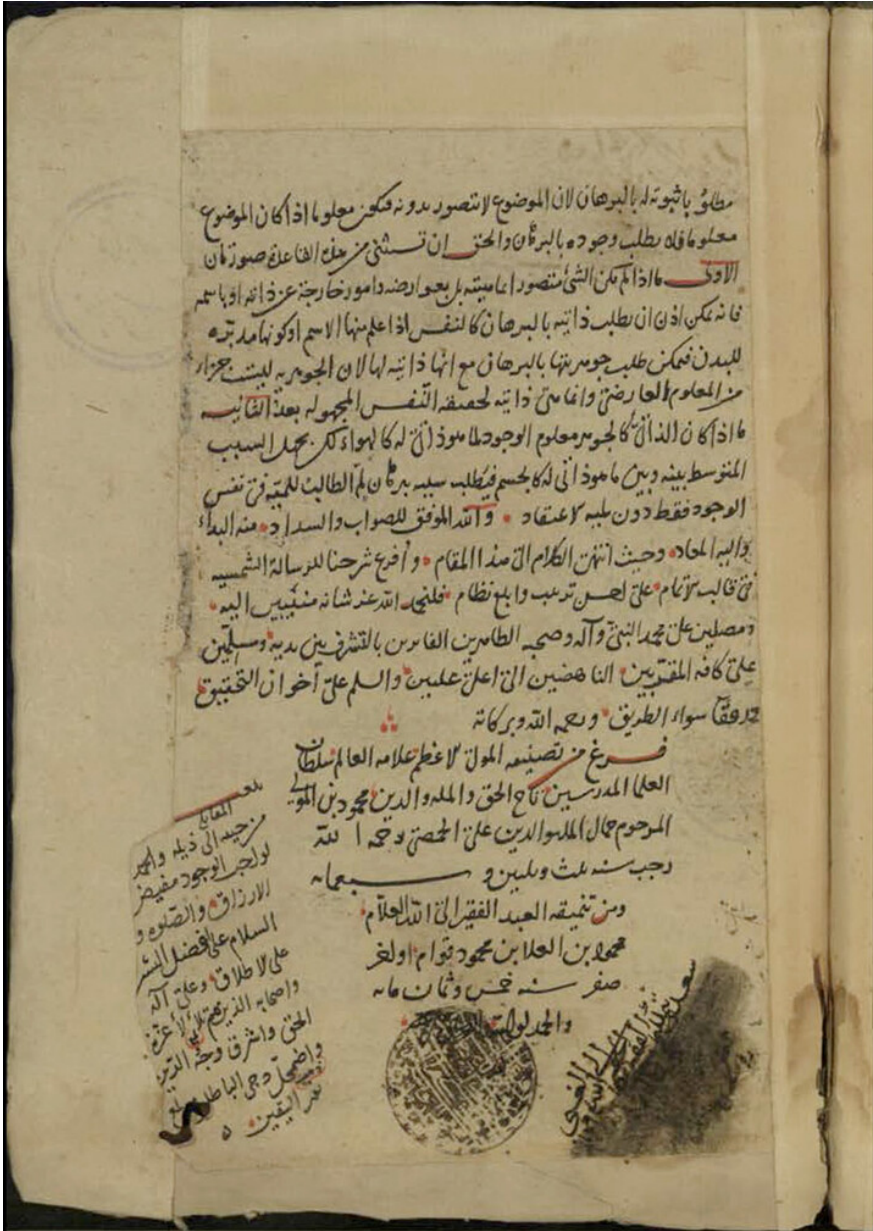 مطلوبا ثبوته له بالبرهان لان الموضوع لا نتصور بدونه فيكون معلوما اذا كان الموضوع
معلوما فلا يطلب وجوده بالبرهان والحق ان تستثنى من هذه القاعدة صورتان
الاولى ما اذا لم يكن الشئ متصورا بماهيته بل بعوارضه وامور خارجة عن ذاته او باسمه
فانه يمكن اذن ان يطلب ذاتيه بالبرهان كالنفس اذا علم منها الاسم او كونها مدبره
للبدن فيمكن طلب جوهريتها بالبرهان مع انها ذاتيه لها لان الجوهريه ليست جزء
من المعلوم العارضى وانما هى ذاتيه لحقيقه النفس المجهوله بعد الثانيه
ما اذا كان الذاتى كالجوهر معلوم الوجود لما هو ذاتى له كالهواء لكن يجهل السبب
المتوسط بينه وبين ما هو ذاتى له كالجسم فيطلب سببه ببرهان لم الطالب للميه فى نفس
الوجود فقط دون لميه الاعتقاد والله الموفق للصواب والسداد منه البداء
واليه المعاد وحيث انتهى الكلام الى هذا المقام وافرغ شرحنا للرسالة الشمسيه
فى قالب الاتمام على احسن ترتيب وابلغ نظام فلنحمد الله عز شانه منيبين اليه
ومصلين على محمد النبى وآله وصحبه الطاهرين الفايزين بالتشرف بين يديه ومسلمين
على كافه المقربين الناهضين الى اعلى عليين والسلم على اخوان التحقيق
سواء الطريق ورحمه الله وبركاته
فرغ من تصنيفه المولى الاعظم علامه العالم سلطان
العلما المدرسين تاج الحق والمله والدين محمود بن المولى
المرحوم جمال المله والدين على الحصى رحمه الله
رجب سنه ثلث وثلثين وسبعمايه
ومن تنميقه العبد الفقير الى الله العلام
محمود بن العلا بن محمود قوام اولغر
صفر سنه خمس وثمان مايه
والحمد لواهب
بلغ
المقابله
من جيده الى ذيله والحمد
لواجب الوجود مفيض
الارزاق والصلوه و
السلام على افضل البشر
على الاطلاق وعلى آله
واصحابه الذين هم
الحق واشرق وجه الدين
واضمحل دجى الباطل
اليقين